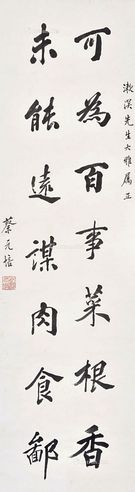 漱溟先生大雅属正
可為百事菜根香
未能遠謀肉食鄙
蔡元培